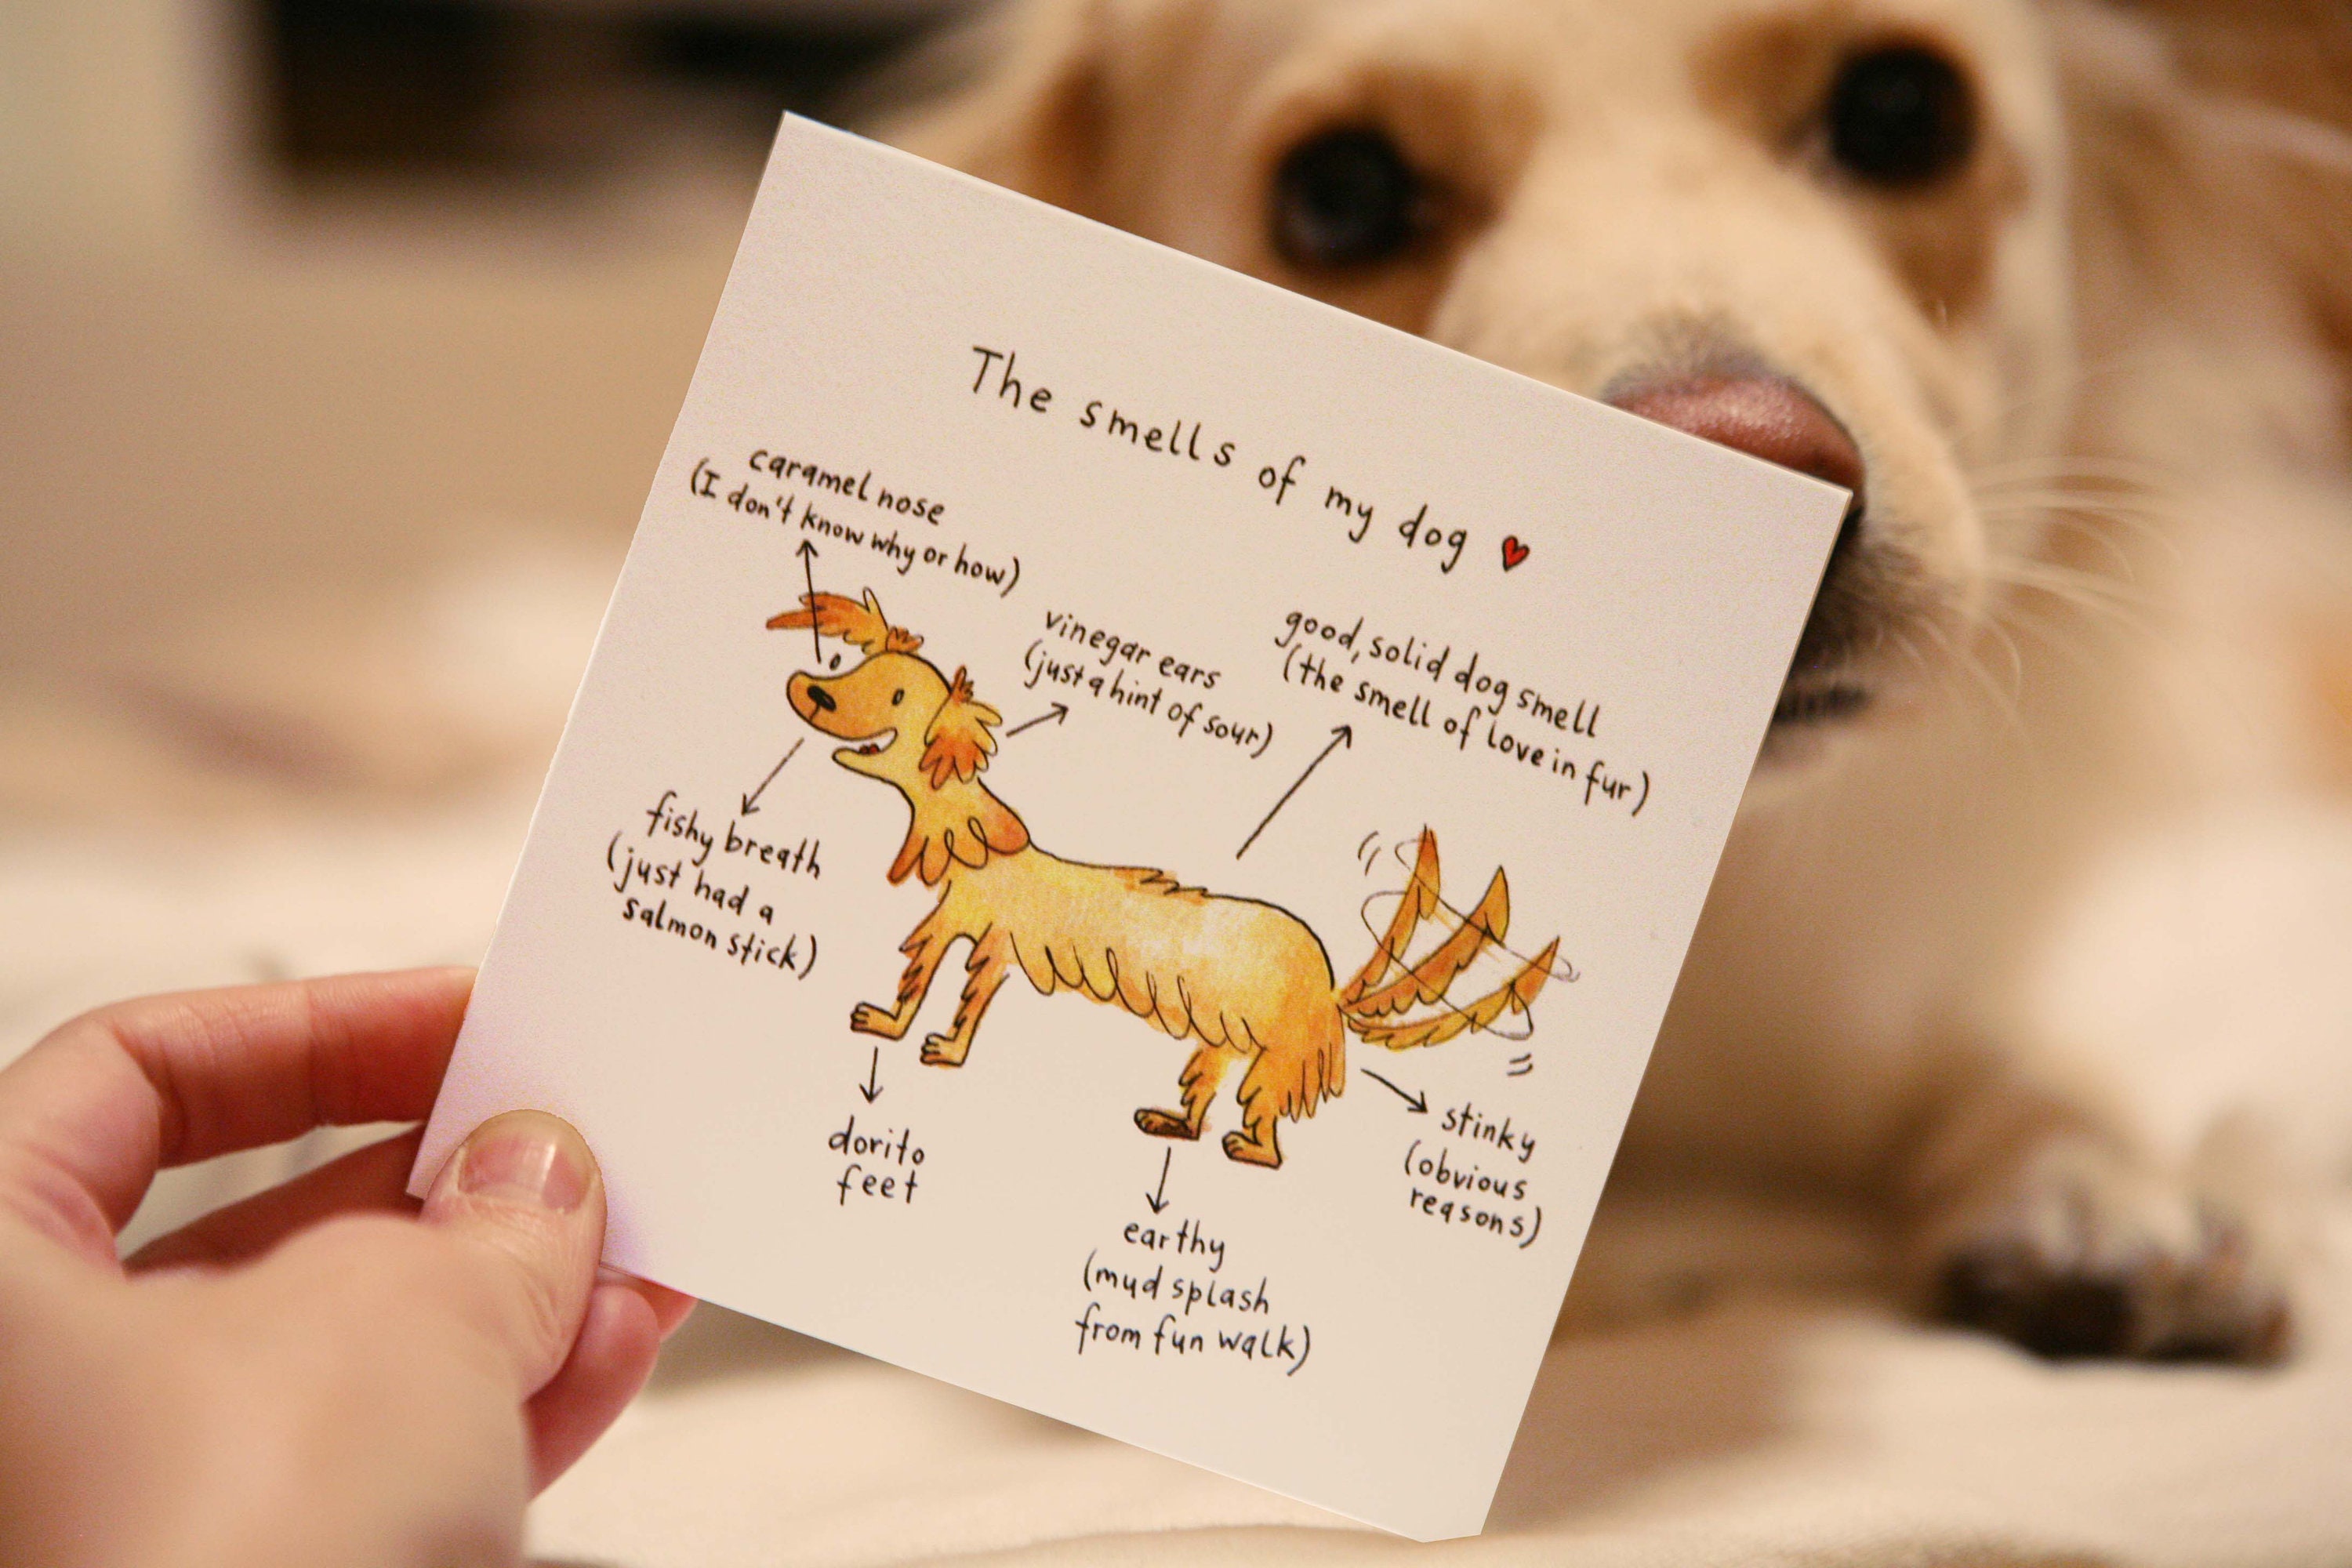 The smells of my dog
caramel nose
(I don't know why or how)
vinegar ears
(just a hint of sour)
good, solid dog smell
(the smell of love in fur)
fishy breath
(just had a
salmon stick)
dorito
feet
earthy
(mud splash
from fun walk)
stinky
(obvious
reasons)